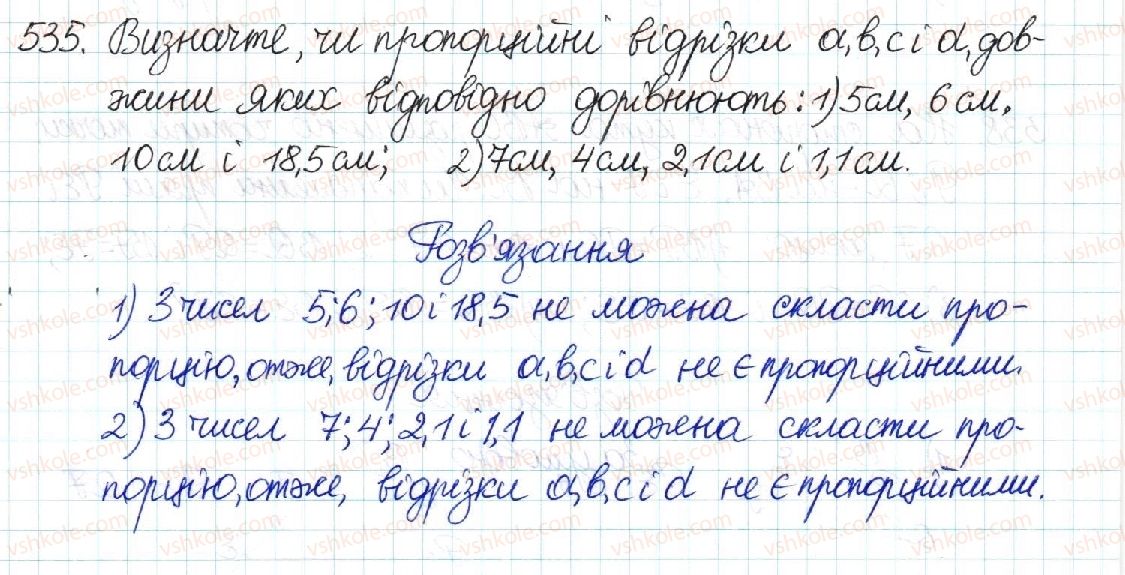 535. Визначте, чи пропорційні відрізки a, b, c і d, дов-
жини яких відповідно дорівнюють: 1) 5см, 6см,
10см і 18,5см; 2) 7см, 4см, 2,1см і 1,1см.
Розв'язання
1) З чисел 5; 6; 10 і 18,5 не можна скласти про-
порцію, отже, відрізки a, b, c і d не є пропорційними.
2) З чисел 7; 4; 2,1 і 1,1 не можна скласти про-
порцію, отже, відрізки a, b, c і d не є пропорційними.